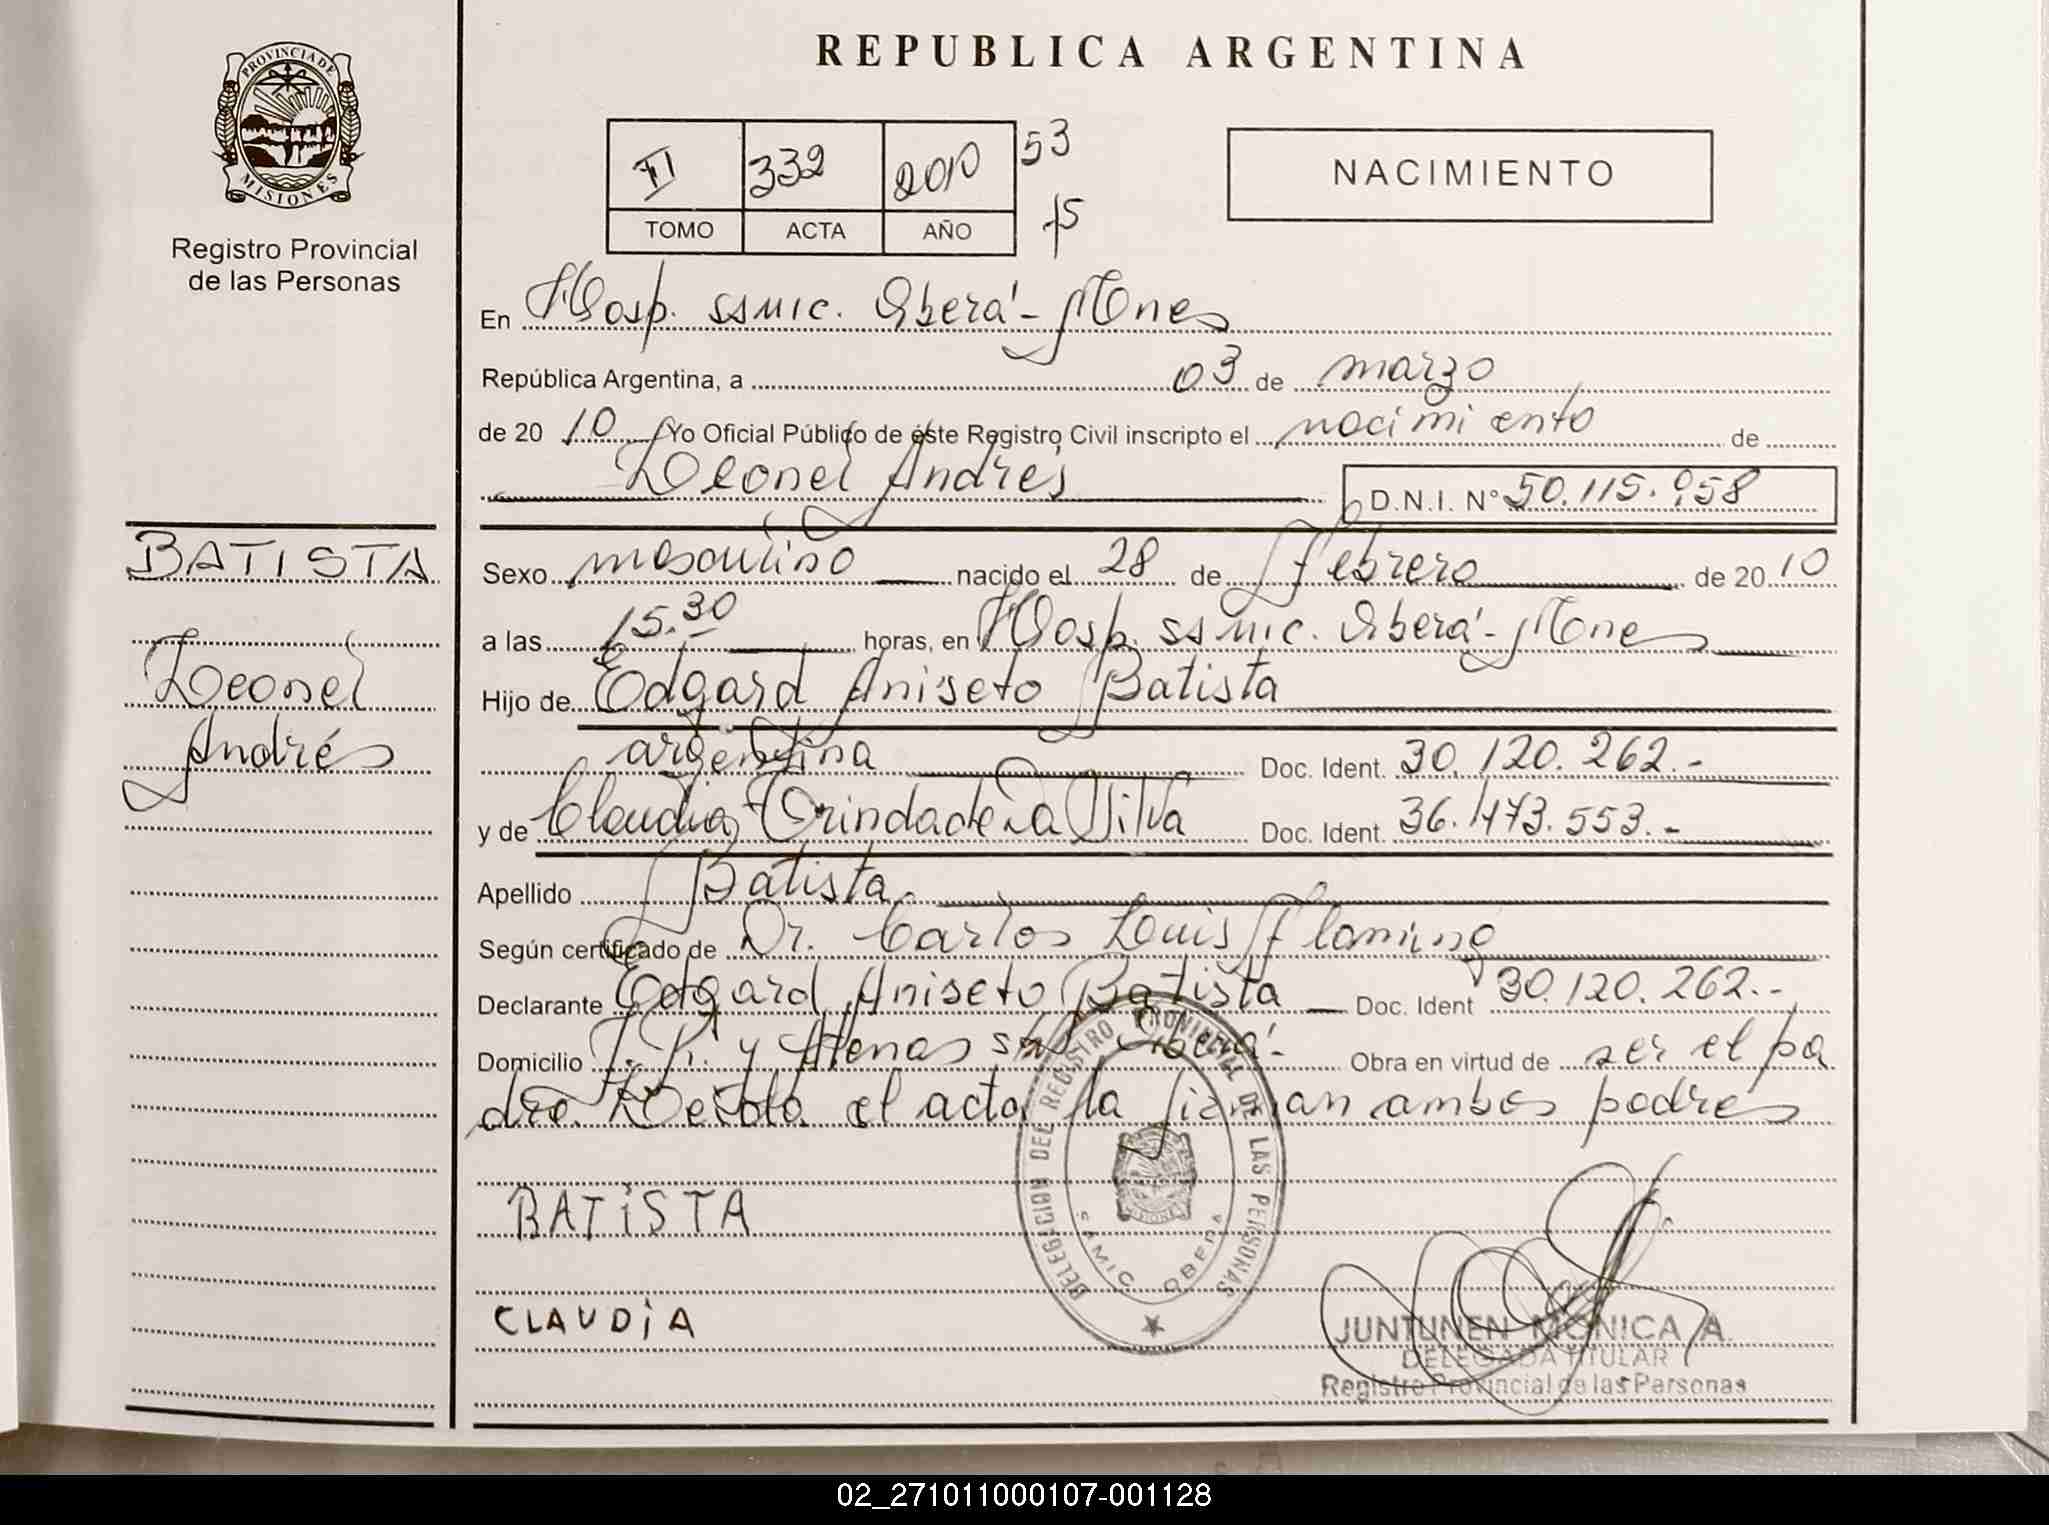 PROVINCIA DE
MISIONES
Registro Provincial
de las Personas
REPUBLICA ARGENTINA
II 332 2010 53
TOMO ACTA AÑO f5
NACIMIENTO
En Hosp. SSMIC. Oberá - Mnes
República Argentina, a 03 de marzo
de 2010 Yo Oficial Público de éste Registro Civil inscripto el nacimiento de
Leonel Andrés D.N.I. N° 50.115.958
BATISTA
Leonel
Andrés
Sexo masculino nacido el 28 de Febrero de 2010
a las 15.30 horas, en Hosp. SSMIC. Oberá - Mnes
Hijo de Edgard Aniseto Batista
argentina Doc. Ident. 30.120.262.-
y de Claudia Trindade Da Silva Doc. Ident. 36.473.553.-
Apellido Batista
Según certificado de Dr. Carlos Luis Flaming
Declarante Edgard Aniseto Batista Doc. Ident 30.120.262.-
Domicilio y Atenas s/n Oberá - Obra en virtud de ser el pa
dre. Leída el acta la firman ambos padres
BATiSTA
CLAUDiA
DELEGACION DEL REGISTRO PROVINCIAL DE LAS PERSONAS
SAMIC OBERA
MISIONES
JUNTUNEN MONICA A.
DELEGADA TITULAR
Registro Provincial de las Personas
02_271011000107-001128